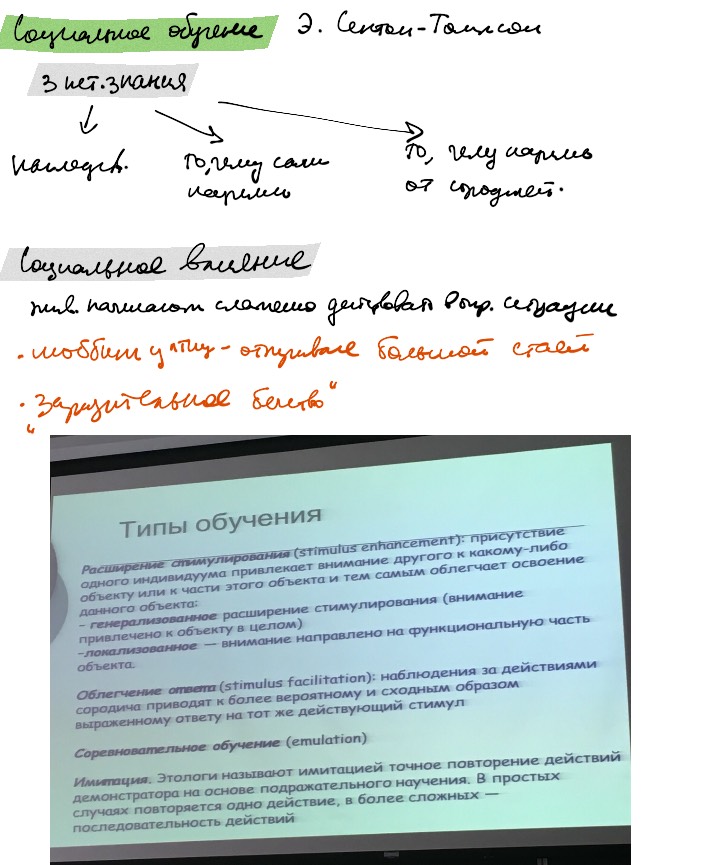 Социальное обучение Э. Сетон-Томпсон
3 ист. знания
наследств.
то, чему сами
научились
то, чему научились
от сородичей.
Социальное влияние
жив. начинают слаженно действовать в опр. ситуации
• моббинг у птиц - отпугивание большой стаей
• "Заразительное бегство"
Типы обучения
Расширение стимулирования (stimulus enhancement): присутствие
одного индивидуума привлекает внимание другого к какому-либо
объекту или к части этого объекта и тем самым облегчает освоение
данного объекта:
- генерализованное расширение стимулирования (внимание
привлечено к объекту в целом)
-локализованное — внимание направлено на функциональную часть
объекта.
Облегчение ответа (stimulus facilitation): наблюдения за действиями
сородича приводят к более вероятному и сходным образом
выраженному ответу на тот же действующий стимул
Соревновательное обучение (emulation)
Имитация. Этологи называют имитацией точное повторение действий
демонстратора на основе подражательного научения. В простых
случаях повторяется одно действие, в более сложных —
последовательность действий